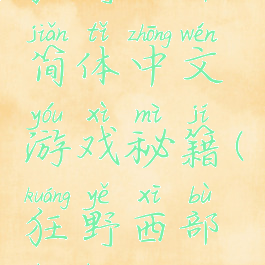 jiǎn tǐ zhōng wén
简体中文
yóu xì mì jí
游戏秘籍(
kuáng yě xī bù
狂野西部